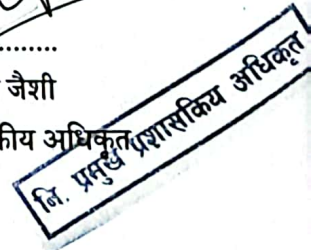 ..........
जैशी
कीय अधिकृत
नि. प्रमुख प्रशासकिय अधिकृत